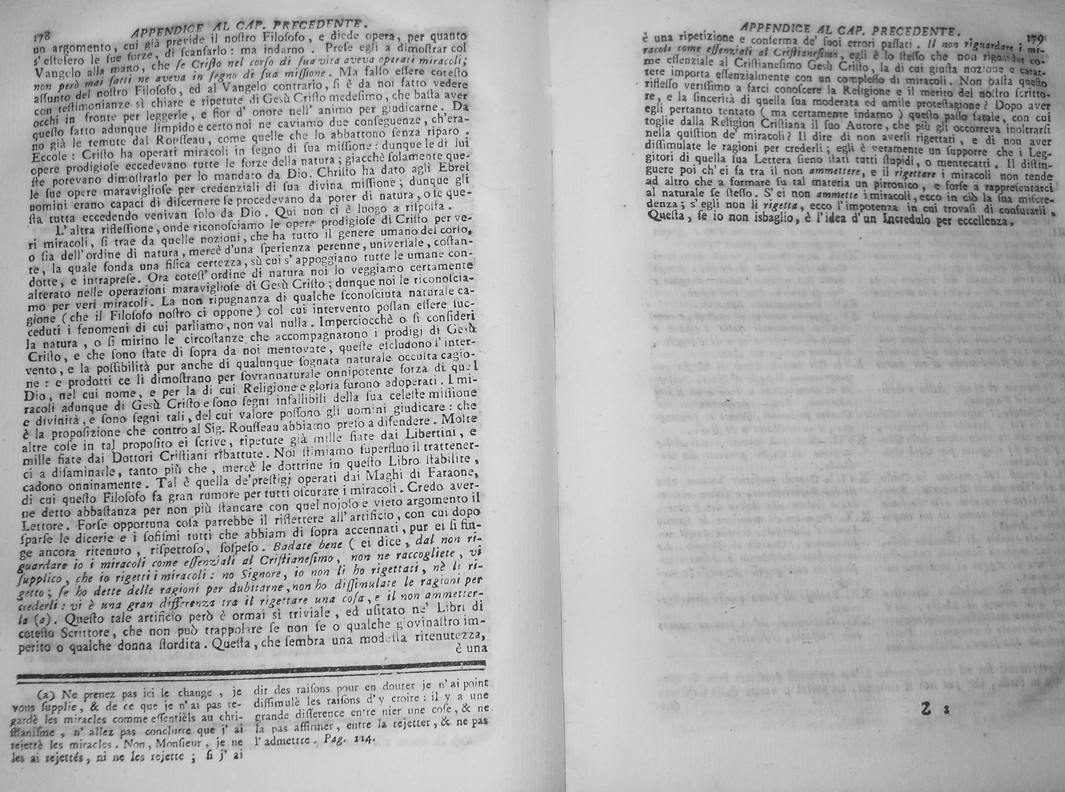 178 APPENDICE AL CAP. PRECEDENTE.
un argomento, cui già previde il noſtro Filoſofo, e diede opera, per quanto
s'eſteſero le ſue forze, di ſcanſarlo: ma indarno. Preſe egli a dimoſtrar col
Vangelo alla mano, che ſe Criſto nel corſo di ſua vita aveva operati miracoli;
non però mai fatti ne aveva in ſegno di ſua miſſione. Ma falſo eſſere coteſto
aſſunto del noſtro Filoſofo, ed al Vangelo contrario, ſi è da noi fatto vedere
con teſtimonianze sì chiare e ripetute di Gesù Criſto medeſimo, che baſta aver
occhi in fronte per leggerle, e fior d' onore nell' animo per giudicarne. Da
queſto fatto adunque limpido e certo noi ne caviamo due conſeguenze, ch'era-
no già le temute dal Rouſſeau, come quelle che lo abbattono ſenza riparo.
Eccole: Criſto ha operati miracoli in ſegno di ſua miſſione: dunque le di lui
opere prodigioſe eccedevano tutte le forze della natura; giacchè ſolamente que-
ſte potevano dimoſtrarlo per lo mandato da Dio. Chriſto ha dato agli Ebrei
le ſue opere maraviglioſe per credenziali di ſua divina miſſione; dunque gli
uomini erano capaci di diſcernere ſe procedevano da poter di natura, o ſe que-
ſta tutta eccedendo venivan ſolo da Dio. Qui non ci è luogo a riſpoſta.
L'altra rifleſſione, onde riconoſciamo le opere prodigioſe di Criſto per ve-
ri miracoli, ſi trae da quelle nozioni, che ha tutto il genere umano del corſo,
o ſia dell'ordine di natura, mercè d'una ſperienza perenne, univerſale, coſtan-
te, la quale fonda una fiſica certezza, sù cui s'appoggiano tutte le umane con-
dotte, e intrapreſe. Ora coteſt'ordine di natura noi lo veggiamo certamente
alterato nelle operazioni maraviglioſe di Gesù Criſto; dunque noi le riconoſcia-
mo per veri miracoli. La non ripugnanza di qualche ſconoſciuta naturale ca-
gione (che il Filoſofo noſtro ci oppone) col cui intervento poſſan eſſere ſuc-
ceduti i fenomeni di cui parliamo, non val nulla. Imperciocchè o ſi conſideri
la natura, o ſi mirino le circoſtanze che accompagnarono i prodigj di Gesù
Criſto, e che ſono ſtate di ſopra da noi mentovate, queſte eſcludono l'inter-
vento, e la poſſibilità pur anche di qualunque ſognata naturale occulta cagio-
ne: e prodotti ce li dimoſtrano per ſovrannaturale onnipotente forza di quel
Dio, nel cui nome, e per la di cui Religione e gloria furono adoperati. I mi-
racoli adunque di Gesù Criſto e ſono ſegni infallibili della ſua celeſte miſſione
e divinità, e ſono ſegni tali, del cui valore poſſono gli uomini giudicare: che
è la propoſizione che contro al Sig. Rouſſeau abbiamo preſo a difendere. Molte
altre coſe in tal propoſito ei ſcrive, ripetute già mille fiate dai Libertini, e
mille fiate dai Dottori Criſtiani ribattute. Noi ſtimiamo ſuperfluo il trattener-
ci a diſaminarle, tanto più che, mercè le dottrine in queſto Libro ſtabilite,
cadono onninamente. Tal è quella de'preſtigj operati dai Maghi di Faraone,
di cui queſto Filoſofo fa gran rumore per tutti oſcurare i miracoli. Credo aver-
ne detto abbaſtanza per non più ſtancare con quel nojoſo e vieto argomento il
Lettore. Forſe opportuna coſa parrebbe il riflettere all'artificio, con cui dopo
ſparſe le dicerie e i ſofiſmi tutti che abbiam di ſopra accennati, pur ei ſi fin-
ge ancora ritenuto, riſpettoſo, ſoſpeſo. Badate bene (ei dice, dal non ri-
guardare io i miracoli come eſſenziali al Criſtianeſimo, non ne raccogliete, vi
ſupplico, che io rigetti i miracoli: no Signore, io non li ho rigettati, nè li ri-
getto; ſe ho dette delle ragioni per dubitarne, non ho diſſimulate le ragioni per
crederli: vi è una gran differenza tra il rigettare una coſa, e il non ammetter-
la (a). Queſto tale artificio però è ormai sì triviale, ed uſitato ne' Libri di
coteſto Scrittore, che non può trappolare ſe non ſe o qualche giovinaſtro im-
perito o qualche donna ſtordita. Queſta, che ſembra una modeſta ritenutezza,
è una
(a) Ne prenez pas ici le change, je
vous ſupplie, & de ce que je n'ai pas re-
gardè les miracles comme eſſentiels au chri-
ſtianiſme, n'allez pas conclurre que j'ai
rejettè les miracles. Non, Monſieur, je ne
les ai rejettés, ni ne les rejette; ſi j'ai
dit des raiſons pour en douter je n'ai point
diſſimulè les raiſons d'y croire: il y a une
grande difference entre nier une coſe, & ne
la pas affirmer, entre la rejetter, & ne pas
l'admettre. Pag. 114.
APPENDICE AL CAP. PRECEDENTE. 179
è una ripetizione e conferma de' ſuoi errori paſſati. Il non riguardare i mi-
racoli come eſſenziali al Criſtianeſimo, egli è lo ſteſſo che non riguardar co-
me eſſenziale al Criſtianeſimo Gesù Criſto, la di cui giuſta nozione e carat-
tere importa eſſenzialmente con un compleſſo di miracoli. Non baſta queſto
rifleſſo veriſſimo a farci conoſcere la Religione e il merito del noſtro ſcritto-
re, e la ſincerità di quella ſua moderata ed umile proteſtagione? Dopo aver
egli pertanto tentato (ma certamente indarno) queſto paſſo fatale, con cui
toglie dalla Religion Criſtiana il ſuo Autore, che più gli occorreva inoltrarſi
nella quiſtion de' miracoli? Il dire di non averli rigettati, e di non aver
diſſimulate le ragioni per crederli; egli è veramente un ſupporre che i Leg-
gitori di quella ſua Lettera ſieno ſtati tutti ſtupidi, o mentecatti. Il diſtin-
guere poi ch'ei fa tra il non ammettere, e il rigettare i miracoli non tende
ad altro che a formare ſu tal materia un pirronico, e forſe a rappreſentarci
al naturale ſe ſteſſo. S'ei non ammette i miracoli, ecco in ciò la ſua miſcre-
denza; s'egli non li rigetta, ecco l'impotenza in cui trovaſi di confutarli.
Queſta, ſe io non isbaglio, è l'idea d'un Incredulo per eccellenza.
Z 2